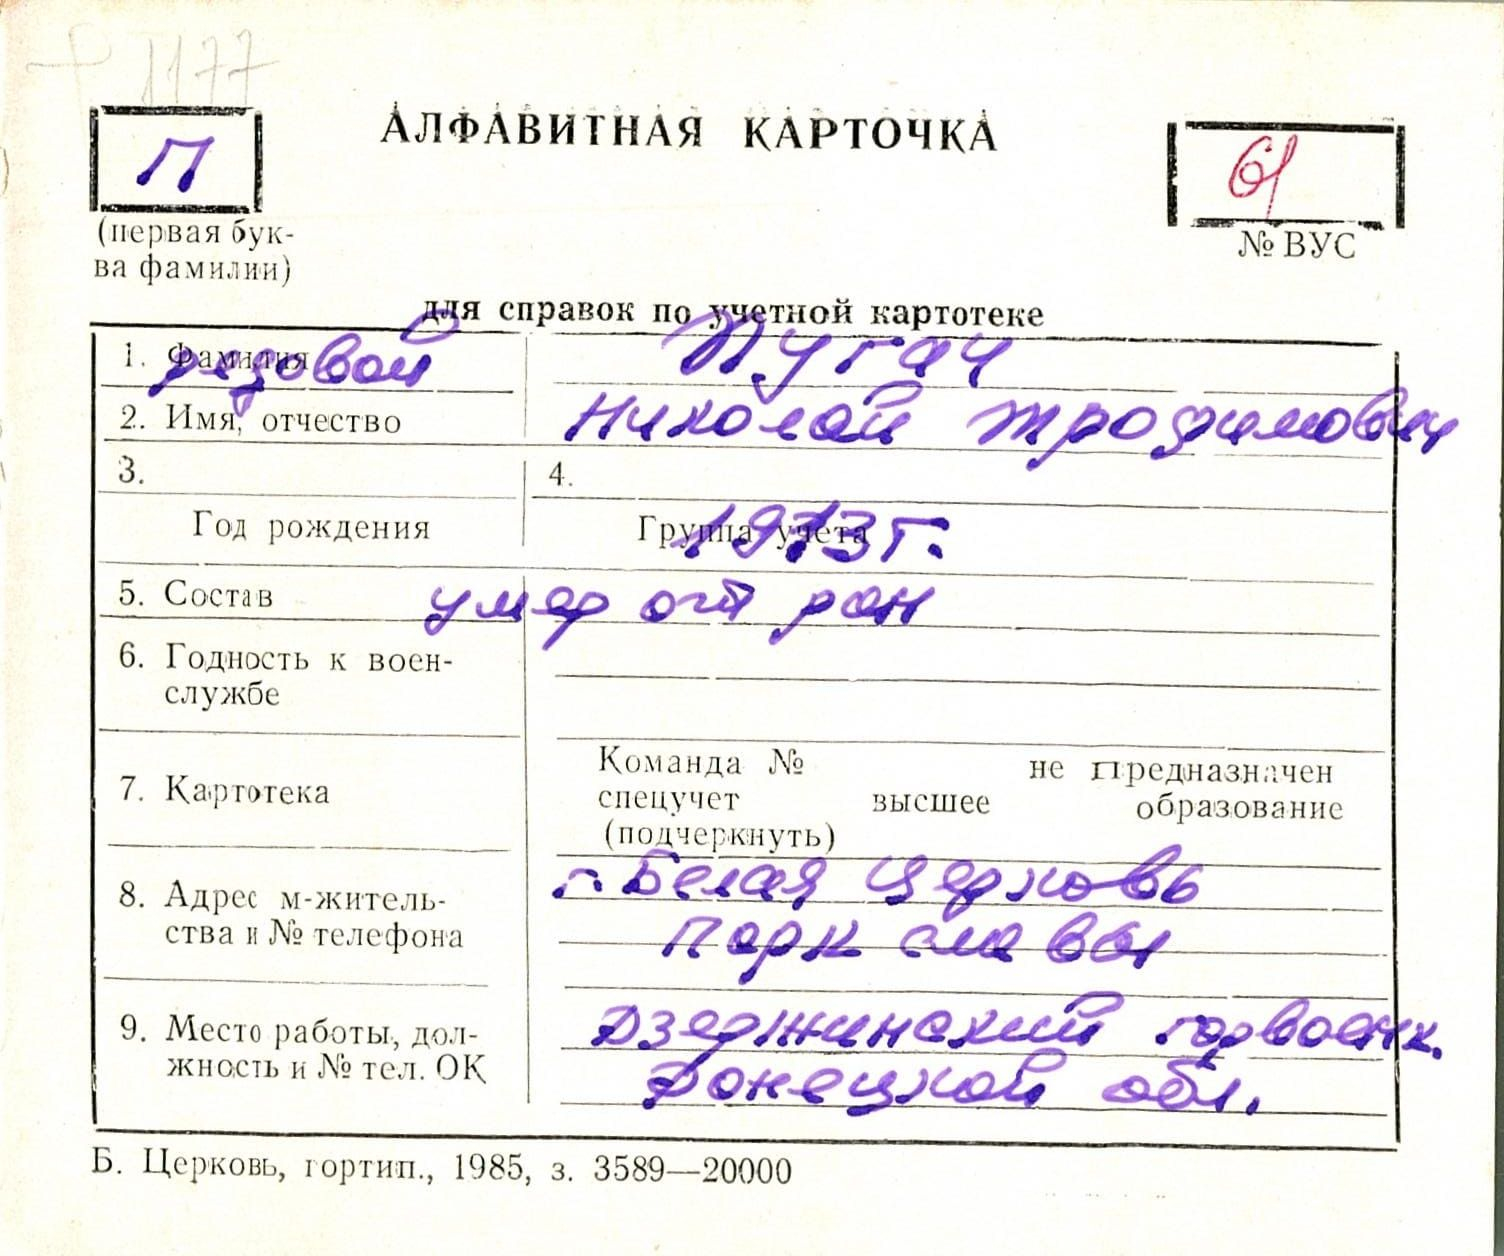 1177
П
АЛФАВИТНАЯ КАРТОЧКА
61
(первая бук-
ва фамилии)
№ ВУС
для справок по учетной картотеке
1. Фамилия рядовой Пугач
2. Имя, отчество Николай Трофимович
3. 4.
Год рождения Группа учета 1913 г.
5. Состав умер от ран
6. Годность к воен-
службе
7. Картотека
Команда № не предназначен
спецучет высшее образование
(подчеркнуть)
8. Адрес м-житель-
ства и № телефона
г. Белая Церковь
Парк славы
9. Место работы, дол-
жность и № тел. ОК
Дзержинский горвоенк.
Донецкой обл.
Б. Церковь, гортип., 1985, з. 3589—20000